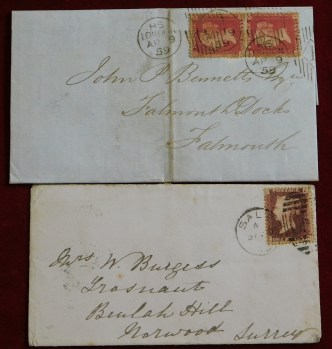 LONDON
AP 9
59
LONDON
AP 9
59
John P. Bennetts Esqr
Falmouth Docks
Falmouth
SAL
A
Mrs W. Burgess
Trosnant
Beulah Hill
Norwood Surrey